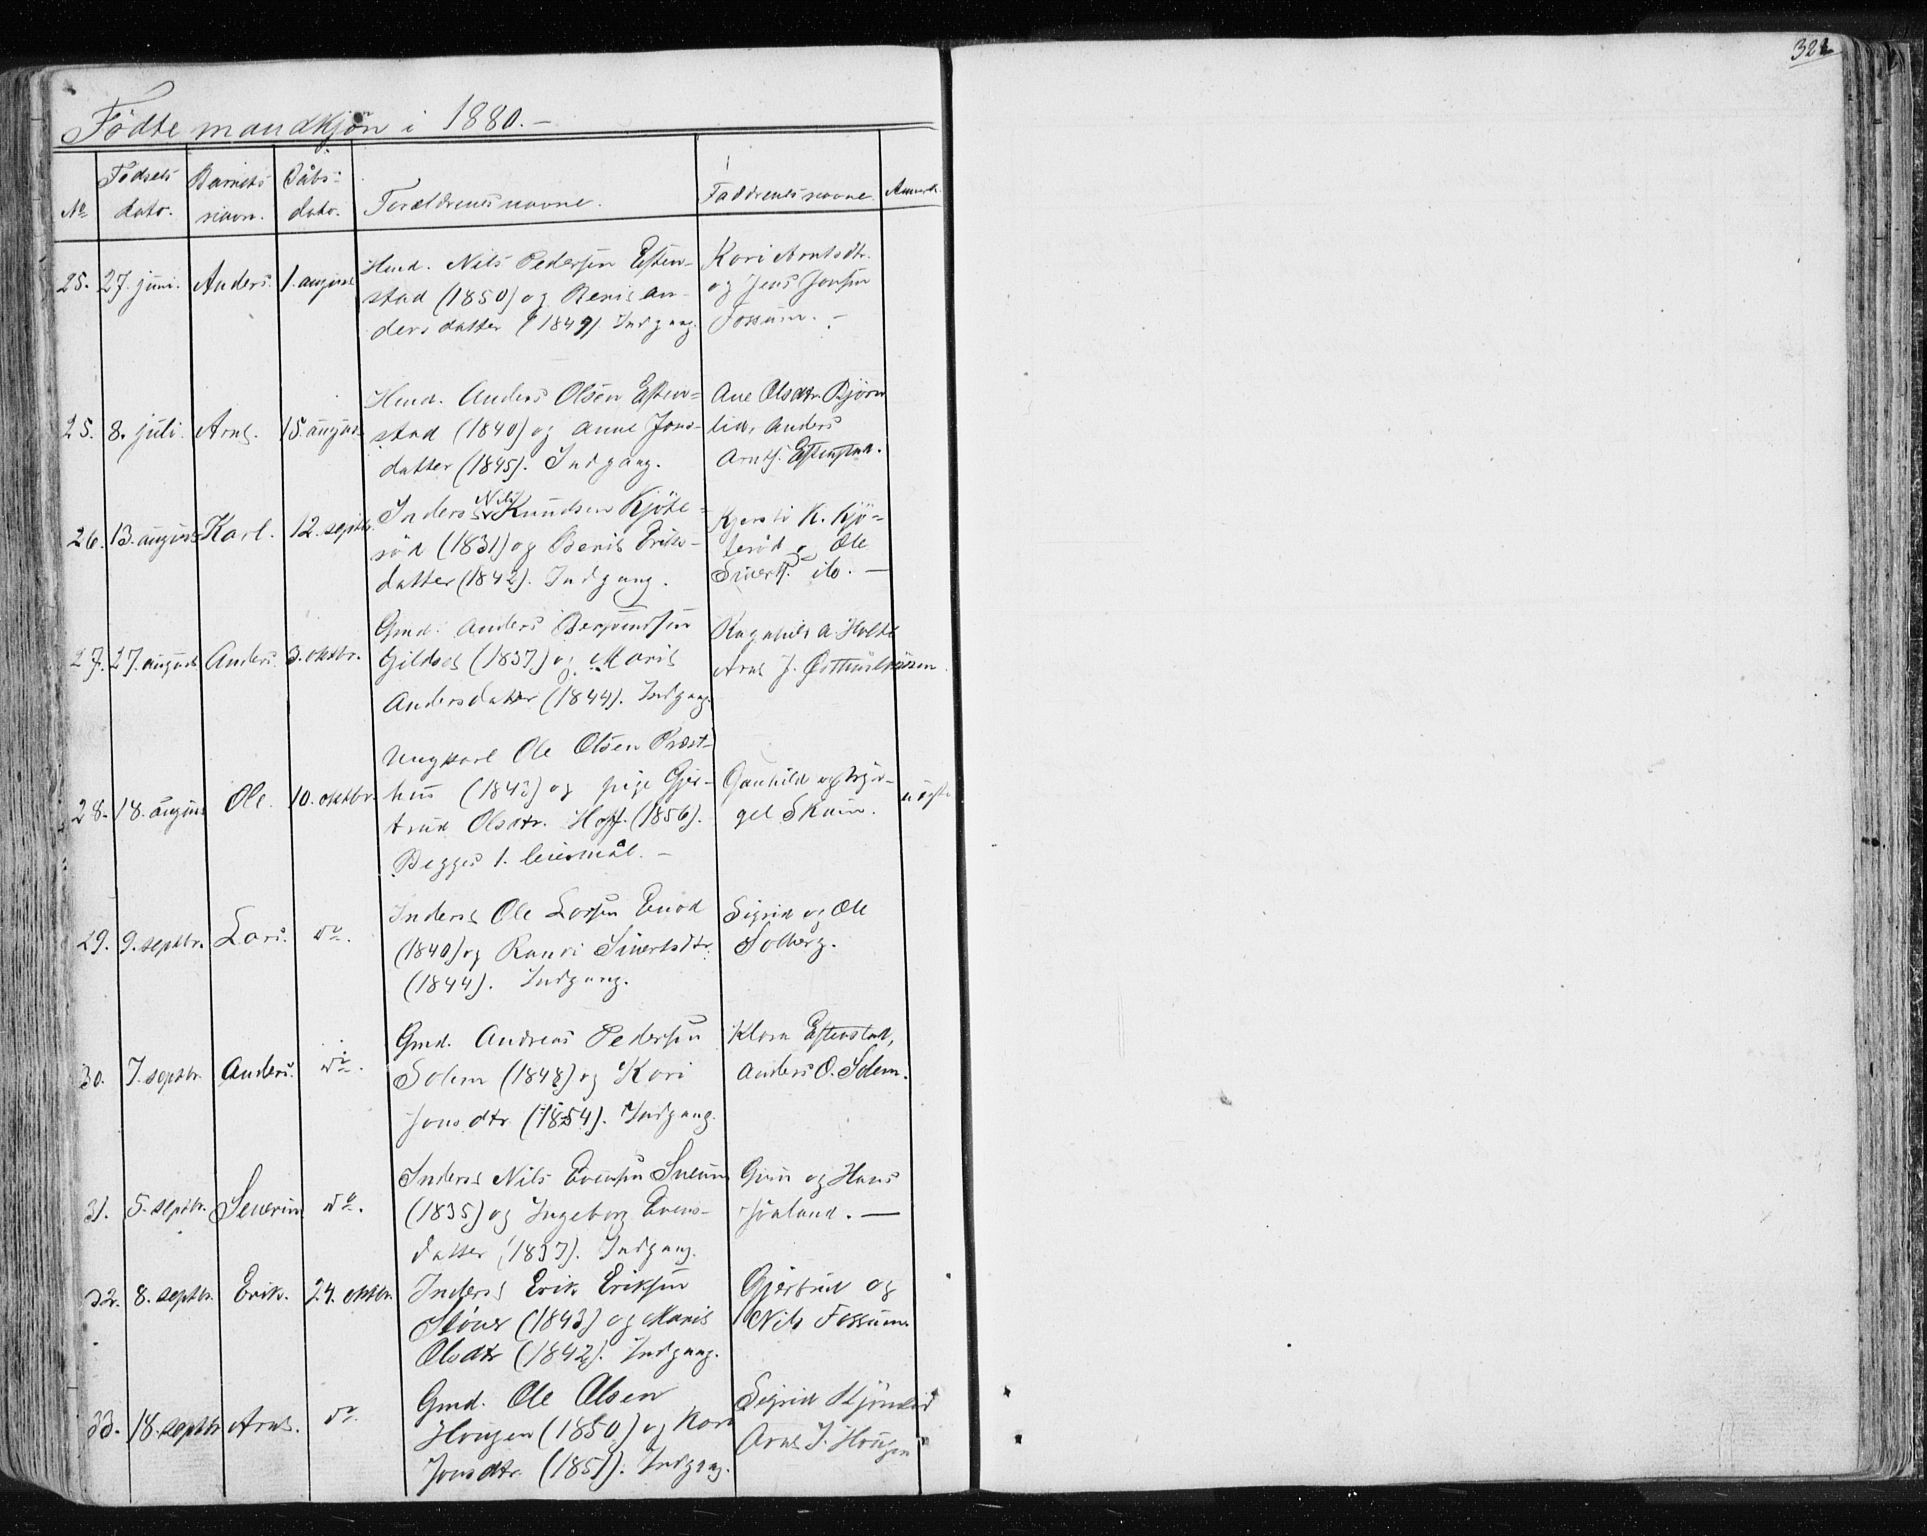 322
Fødte mandkjøn i 1880.-
No
Fødsels dato.
Barnets navn.
Dåbs- dato.
Forældrenes navne.
Faddrenes navne.
Anmerk.
25. 27. juni. Anders. 1. august
Hmd. Nils Pedersen Esten-
stad (1850) og Berit An-
dersdatter (1849) Indgang.
Kari Arntsdtr.
og Jens Jensen
Fossum. -
25. 8. juli. Arnt. 15. august
Hmd. Anders Olsen Esten-
stad (1840) og Anne Jons-
datter (1845). Indgang.
Ane Olsdtr. Bjørn
lid, Anders
Arnts. Estenstad.
26. 13. august Karl. 12. septbr.
Inders Nils Knudsen Kjøte-
rød (1831) og Berit Eriks-
datter (1842). Indgang.
Kjersti K. Kjø-
terød og Ole
Sivert. do. —
27. 27. august Anders. 3. oktbr.
Gmd. Anders
Gildset (1837) og Marit
Andersdatter (1844). Indgang.
Ragnhild A. Holte
Arnt J.
28. 18. august Ole. 10. oktbr.
Ungkarl Ole Olsen Præst-
hus (1843) og pige Gjer-
trud Olsdtr. Hoff. (1856).
Begges 1. leiermål. -
Gunhild og
Skum.
uægte
29. 9. septbr. Lars. do.
Inders Ole Larsen Enod
(1840) og Ranri Sivertsdtr.
(1844). Indgang.
Sigrid og Ole
Solberg.
30. 7. septbr. Anders. do.
Gmd. Andreas Pedersen
Solem (1848) og Kari
Jonsdtr. (1854). Indgang.
Klara Estenstad,
Anders O. Solem.
31. 5. septbr. Severin do.
Inders Nils Evensen
(1835) og Ingeborg Evens-
datter (1837). Indgang.
Guri og Hans
—
32. 8. septbr. Erik. 24. oktbr.
Inders Erik Eriksen
Støver (1843) og Marit
Olsdtr (1842). Indgang.
Gjertrud og
Nils Fossum
33. 18. septbr Arnt. do.
Gmd. Ole Olsen
Haugen (1850) og Kari
Jonsdtr. (1851). Indgang.
Sigrid
Arnt J. Haugen